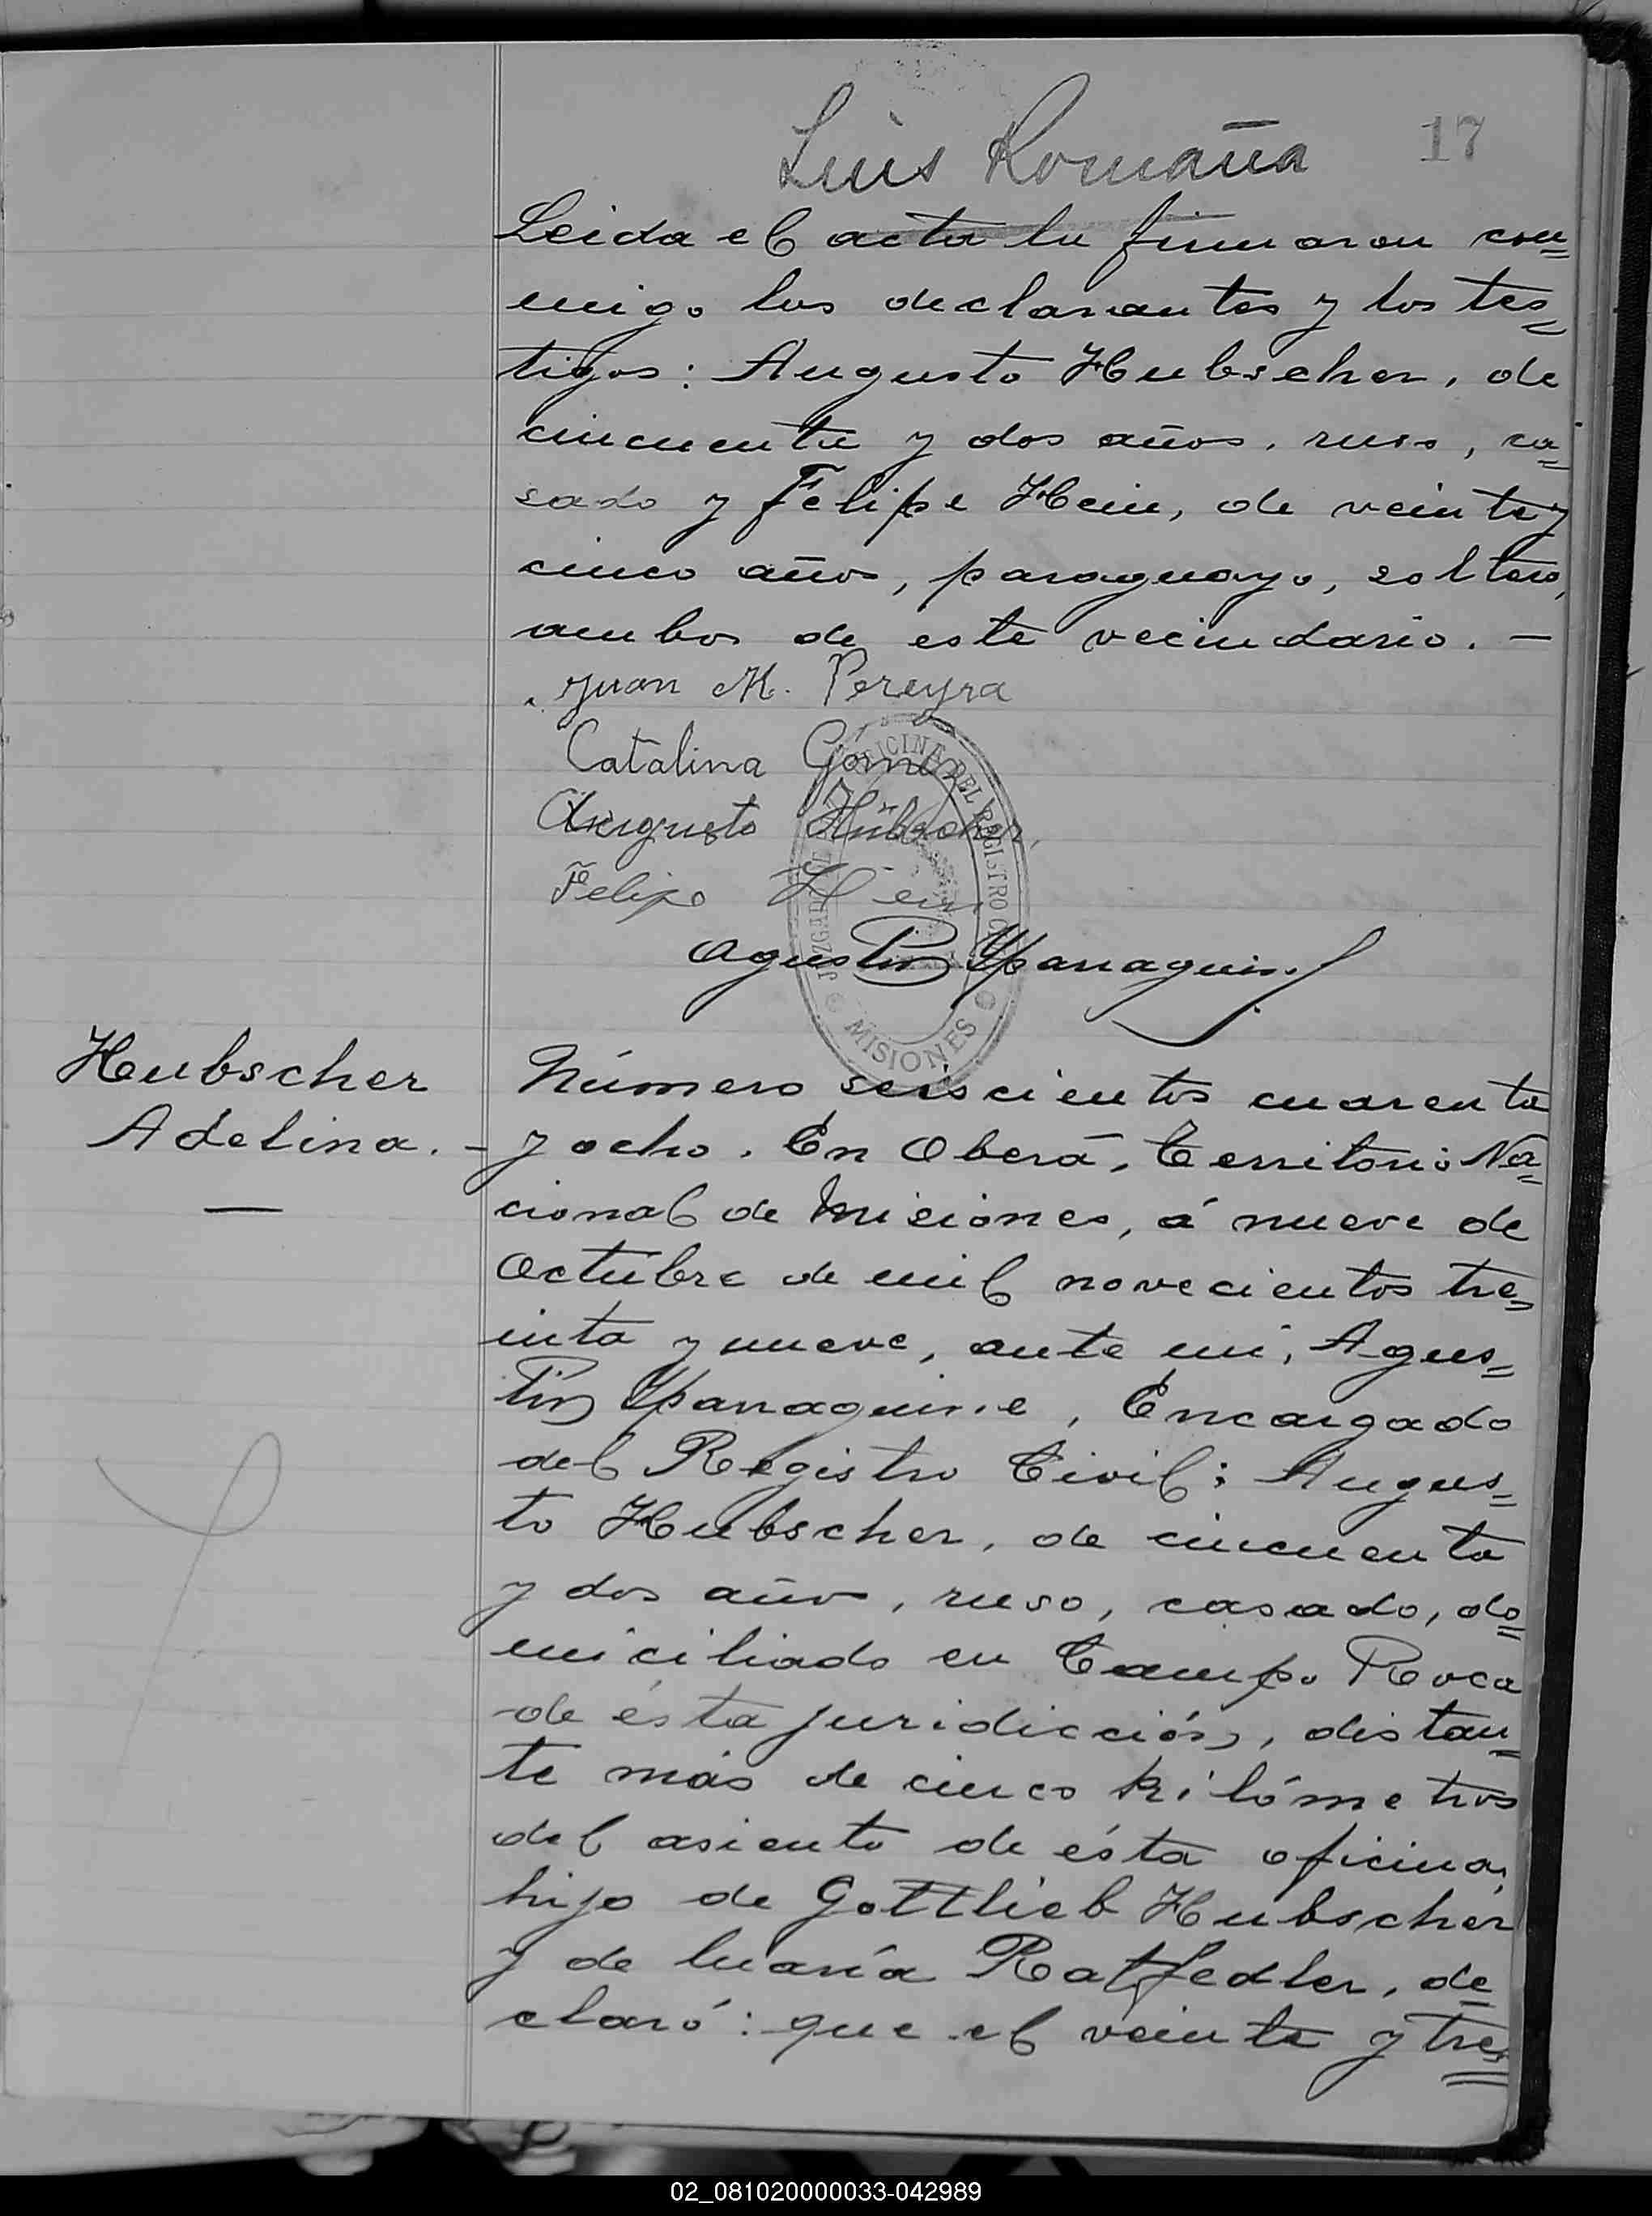 Luis Romaña
17
Leida el acta la firmaron con=
migo los declarantes y los tes=
tigos: Augusto Hubscher, de
cincuenta y dos años, ruso, ca=
sado y Felipe Hein, de veinte y
cinco años, paraguayo, soltero,
ambos de este vecindario. —
Juan M. Pereyra
Catalina Gómez
Augusto Hübscher
Felipe Hein
Agustin Yparraguirre
OFICINA DEL REGISTRO
JUZGADO DE
MISIONES
Hubscher
Adelina. —
Número seiscientos cuarenta
y ocho. En Oberá, Territorio Na=
cional de Misiones, á nueve de
Octubre de mil novecientos tre=
inta y nueve, ante mi, Agus=
tin Yparraguirre, Encargado
del Registro Civil; Augus=
to Hubscher, de cincuenta
y dos años, ruso, casado, do=
miciliado en Campo Roca
de ésta juridicción, distan=
te más de cinco kilómetros
del asiento de ésta oficina,
hijo de Gottlieb Hubscher
y de María Ratfedler, de=
claró: que el veinte y tres
02_081020000033-042989